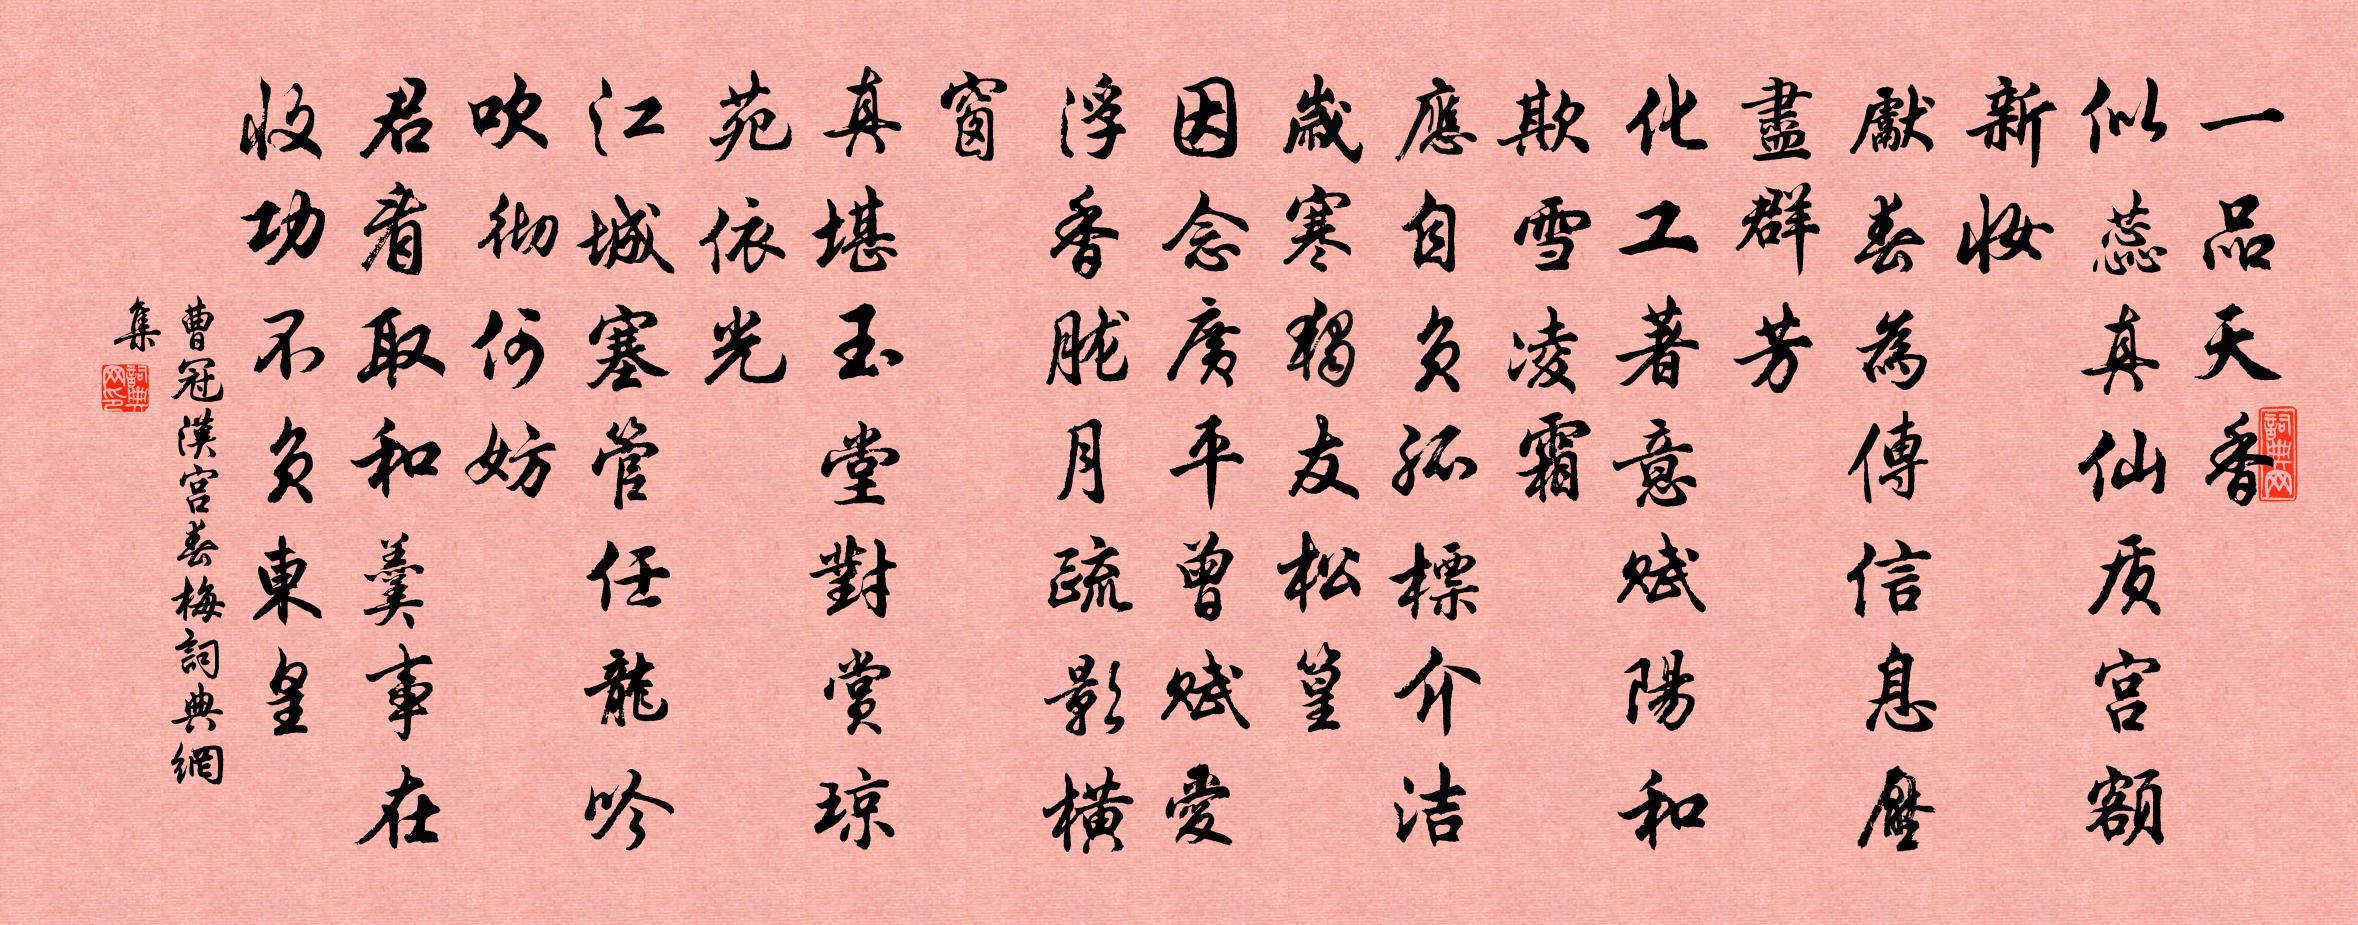 一品天香
似蕊真仙质宫额
新妝
獻春為傳信息壓
盡群芳
化工著意賦陽和
欺雪凌霜
應自負孤標介洁
歲寒獨友松篁
因念廣平曾賦愛
浮香朧月疏影橫
窗
真堪玉堂對賞琼
苑依光
江城塞管任龍吟
吹彻何妨
君看取和羹事在
收功不負東皇
曹冠漢宮春梅詞典網
集
詞典网
詞典网印